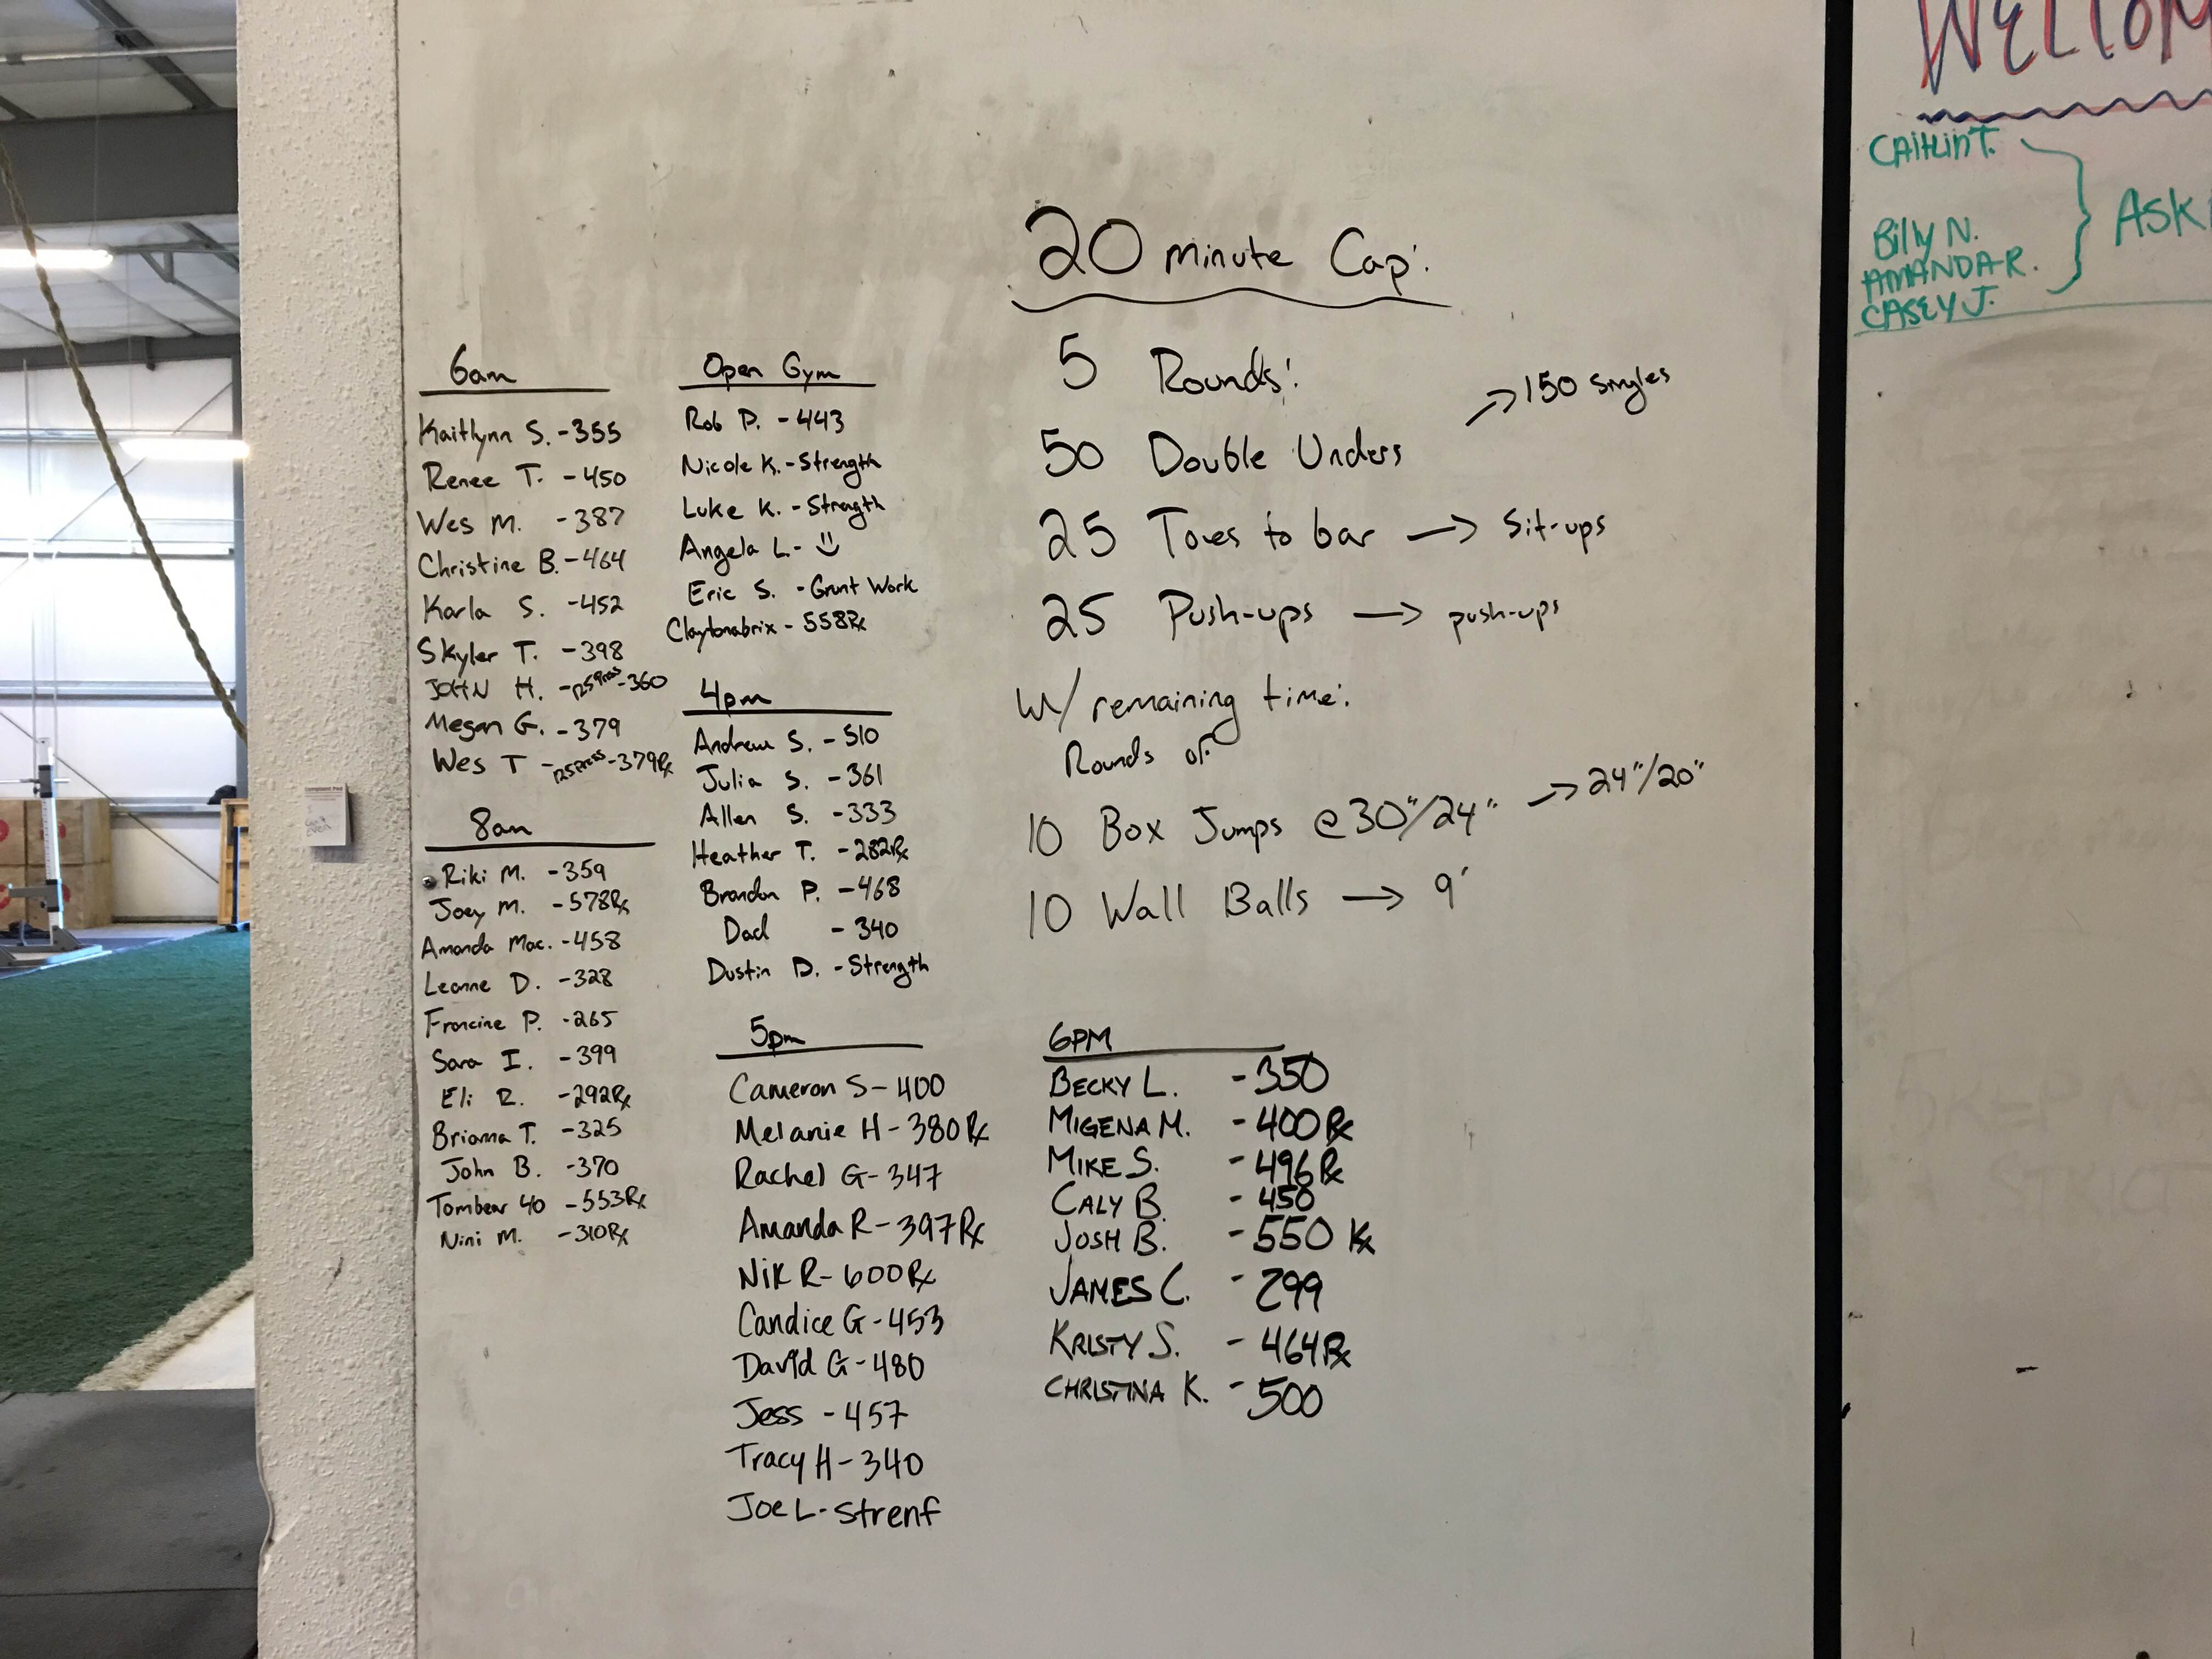 20 Minute Cap:
5 Rounds:
50 Double Unders → 150 Singles
25 Toes to bar → Sit-ups
25 Push-ups → push-ups
W/ remaining time:
Rounds of
10 Box Jumps @ 30"/24" → 24"/20"
10 Wall Balls → 9'
6am
Kaitlynn S. - 355
Renee T. - 450
Wes M. - 387
Christine B. - 464
Karla S. - 452
Skyler T. - 398
JOHN H. - 125 Press - 360
Megan G. - 379
Wes T - 125 press - 379 Rx
8am
Riki M. - 359
Joey M. - 578 Rx
Amanda Mac. - 458
Leanne D. - 328
Francine P. - 265
Sara I. - 399
Eli R. - 292 Rx
Brianna T. - 325
John B. - 370
Tombear 40 - 553 Rx
Nini M. - 310 Rx
Open Gym
Rob P. - 443
Nicole K. - Strength
Luke K. - Strength
Angela L. -
Eric S. - Grunt Work
Claytonabrix - 558 Rx
4pm
Andrew S. - 510
Julia S. - 361
Allen S. - 333
Heather T. - 282 Rx
Brandon P. - 468
Dad - 340
Dustin D. - Strength
5pm
Cameron S - 400
Melanie H - 380 Rx
Rachel G - 347
Amanda R - 397 Rx
Nik R - 600 Rx
Candice G - 453
David G - 480
Jess - 457
Tracy H - 340
Joe L - Strenf
6PM
BECKY L. - 350
MIGENA M. - 400 Rx
MIKE S. - 496 Rx
CALY B. - 450
JOSH B. - 550 Rx
JAMES C. - 299
KRISTY S. - 464 Rx
CHRISTINA K. - 500
WELCOM
CAITLIN T.
Billy N.
AMANDA R.
CASEY J.
ASK